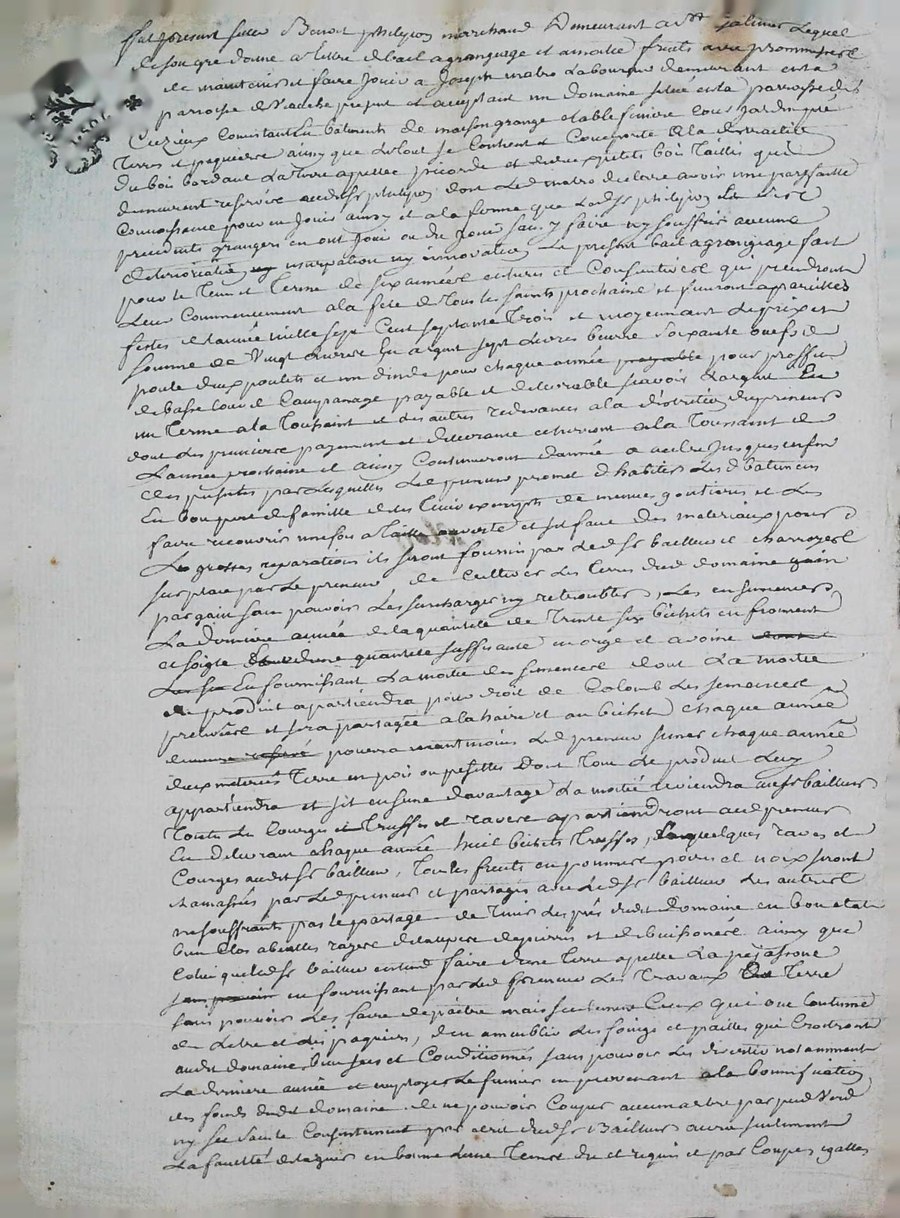 fut present sieur Benoit philipon marchand Demeurant a st galmier Lequel
de son gré donne a titre de bail a grangeage et a moitié fruits avec promesse
de maintenir et faire jouir a Joseph matro Laboureur demeurant en la
paroisse de present et acceptant un Domaine situé en la paroisse de
Cuzieux Consistant en batiments de maison grange etable jardin pré
Terres et paquiere ainsy que le tout se Contient et Comporte a la
du bois bordant La terre appellée picorde et deux petits bois Taillis qui
demeurent reservé audit sr philipon dont Led matro declare avoir une parfaitte
Connoissance pour en Jouir ainsy et a la forme que Ledit sr philipon et
precedents grangers en ont Joui ou du Jouir sans y faire ny souffrir aucune
deterioration ny usurpation ny innovation Le present bail a grangeage fait
pour le Tems et Terme de six années entieres et Consecutives qui prendront
Leur Commencement a la fete de Tous les saints prochaine et finiront a pareilles
festes de l'année mille sept Cent septante Trois et moyennant Le prix et
somme de Vingt livres En argent sept Livres beurre soixante oeufs
poule deux poulets et un dinde pour chaque année payable pour proffits
de basse Cour payable et delivrable scavoir L'argent En
un Terme a la Toussaint et des autres redevances a la discretion du preneur
dont Les premiers payement et delivrance echeront a la Toussaint de
L'année prochaine et ainsy Continueront d'année a autre Jusques en fin
des presentes par Lesquelles Le preneur promet d'habiter Les d batiments
En bon pere de famille et les tenir exempts de menues goutieres et Les
faire recouvrir une fois a Taille ouverte et s'il faut des materiaux pour
Les grosses reparations ils seront fournis par Ledit sr bailleur et charroyes
sur place par Le preneur de Cultiver Les terres dud domaine gain
par gain sans pouvoir Les surcharger ny retroubler, Les ensemencer
La derniere année de la quantité de Trente six bichets en froment
et seigle d'une quantité suffisante en orge et avoine
En fournissant La moitié des semences dont La moitié
du produit apartiendra pour droit de Colomb Les semences
prelevées et sera partagée a la haire et au bichet chaque année
pourra neantmoins Led preneur semer chaque année
deux meterées Terre en pois ou pesettes Dont Tout Le produit Luy
appartiendra et s'il en seme davantage La moitié reviendra audit sr bailleur
Toutes Les Courges et Truffes et raves apartiendront aud preneur
En delivrant chaque année huit bichets Truffes, quelques raves et
Courges audit sr bailleur, Tous les fruits en pommes poires et noix seront
ramassés par Led preneur et partagés avec Ledit sr bailleur Les autres
ne souffrants pas le partage de Tenir Les prés dudit Domaine en bon etat
bien Clos abeallés razés de taupiere depierrés et debuissonés ainsy que
Celui que Ledit sr bailleur entend faire d'une Terre apellée La pejassone
en fournissant par Led preneur Les Travaux Terre
sans pouvoir Les faire depaitre mais seulement Ceux qui ont Coutume
de L'etre et des paquiers, d'en ameublir Les foings et pailles qui Croitront
audit domaine bien secs et Conditionnés sans pouvoir Les divertir notamment
La derniere année et employer Le fumier en provenant a la bonnification
des fonds dudit Domaine de ne pouvoir Couper aucun arbre par pied Verd
ny sec sans le Consentement par ecrit dudit sr Bailleur aura seulement
La faculté d'elaguer en bonne Lune Tems du et requis et par Coupes egalles